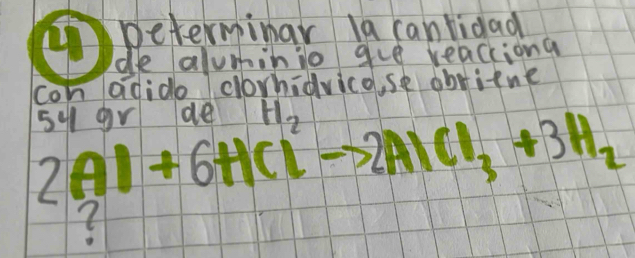 4 Determinar la cantidad
de aluminio que reacciona
con ácido clorhídrico, se obtiene
54 gr de H₂
2Al + 6HCl → 2AlCl₃ + 3H₂
?